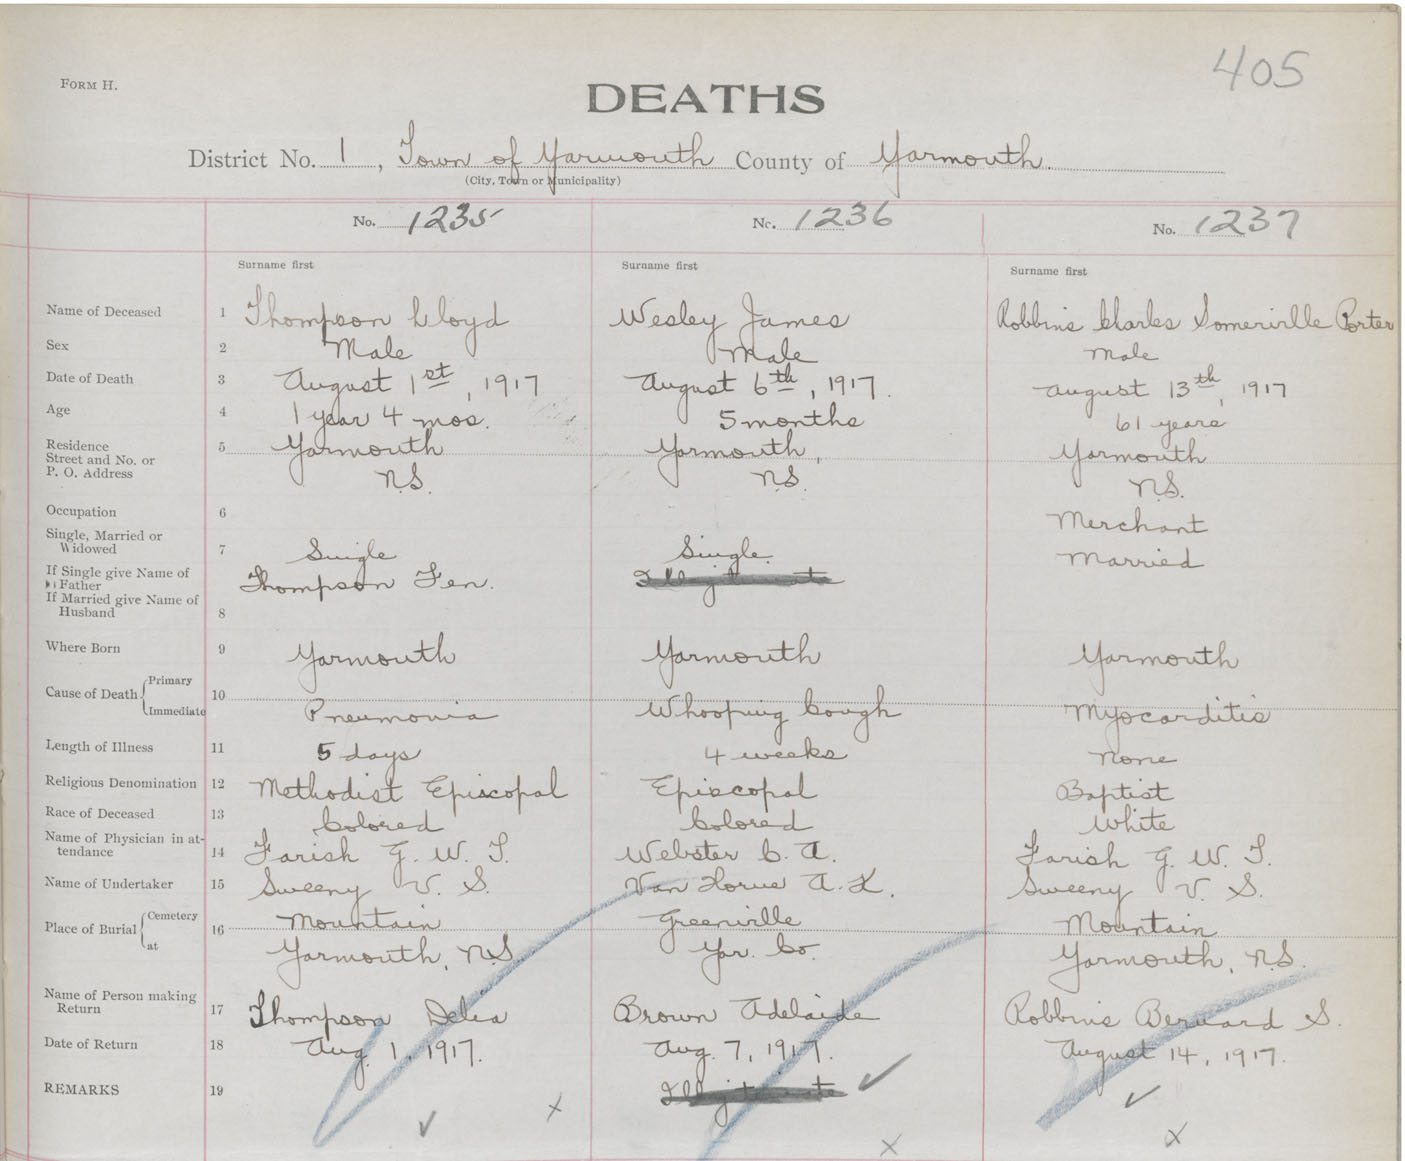 405
FORM H.
DEATHS
District No. 1, Town of Yarmouth County of Yarmouth.
(City, Town or Municipality)
No. 1235 No. 1236 No. 1237
Surname first Surname first Surname first
Name of Deceased 1 Thompson Lloyd Wesley James Robbins Charles Somerville Porter
Sex 2 Male Male Male
Date of Death 3 August 1st, 1917 August 6th, 1917. August 13th, 1917
Age 4 1 year 4 mos. 5 months 61 years
Residence 5 Yarmouth Yarmouth, Yarmouth
Street and No. or
P. O. Address N.S. N.S. N.S.
Occupation 6 Merchant
Single, Married or
Widowed 7 Single Single Married
If Single give Name of
Father Thompson Fen. Illegitimate
If Married give Name of
Husband 8
Where Born 9 Yarmouth Yarmouth Yarmouth
Cause of Death Primary 10
Immediate Pneumonia Whooping Cough Myocarditis
Length of Illness 11 5 days 4 weeks None
Religious Denomination 12 Methodist Episcopal Episcopal Baptist
Race of Deceased 13 Colored Colored White
Name of Physician in at-
tendance 14 Farish G. W. T. Webster C. A. Farish G. W. T.
Name of Undertaker 15 Sweeny V. S. Van Horne A. K. Sweeny V. S.
Place of Burial Cemetery 16 Mountain Greenville Mountain
at Yarmouth, N.S. Yar. Co. Yarmouth, N.S.
Name of Person making
Return 17 Thompson Delia Brown Adelaide Robbins Bernard S.
Date of Return 18 Aug. 1, 1917. Aug. 7, 1917. August 14, 1917.
REMARKS 19 Illegitimate